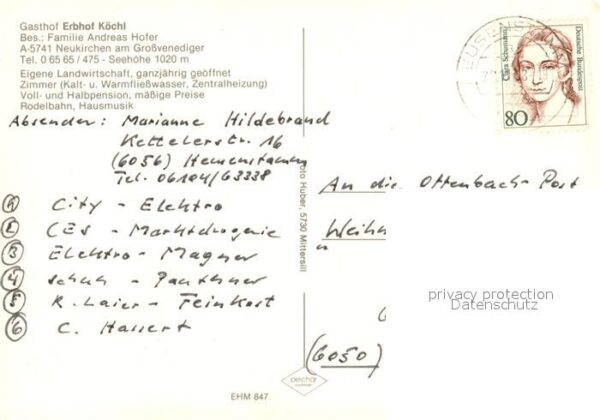 Gasthof Erbhof Köchl
Bes.: Familie Andreas Hofer
A-5741 Neukirchen am Großvenediger
Tel. 0 65 65 / 475 - Seehöhe 1020 m
Eigene Landwirtschaft, ganzjährig geöffnet
Zimmer (Kalt- u. Warmfließwasser, Zentralheizung)
Voll- und Halbpension, mäßige Preise
Rodelbahn, Hausmusik
Absender: Marianne Hildebrand
Kettelerstr. 16
(6056) Heusenstamm
Tel. 06104/63338
① City - Elektro
② CES - Marktdrogerie
③ Elektro - Magner
④ Schuh - Panthner
⑤ R. Laier - Feinkost
⑥ C. Hassert
oto Huber, 5730 Mittersill
EHM 847
Deutsche Bundespost
Clara Schumann
80
An die Offenbach-Post
Weihn
(6050)
privacy protection
Datenschutz